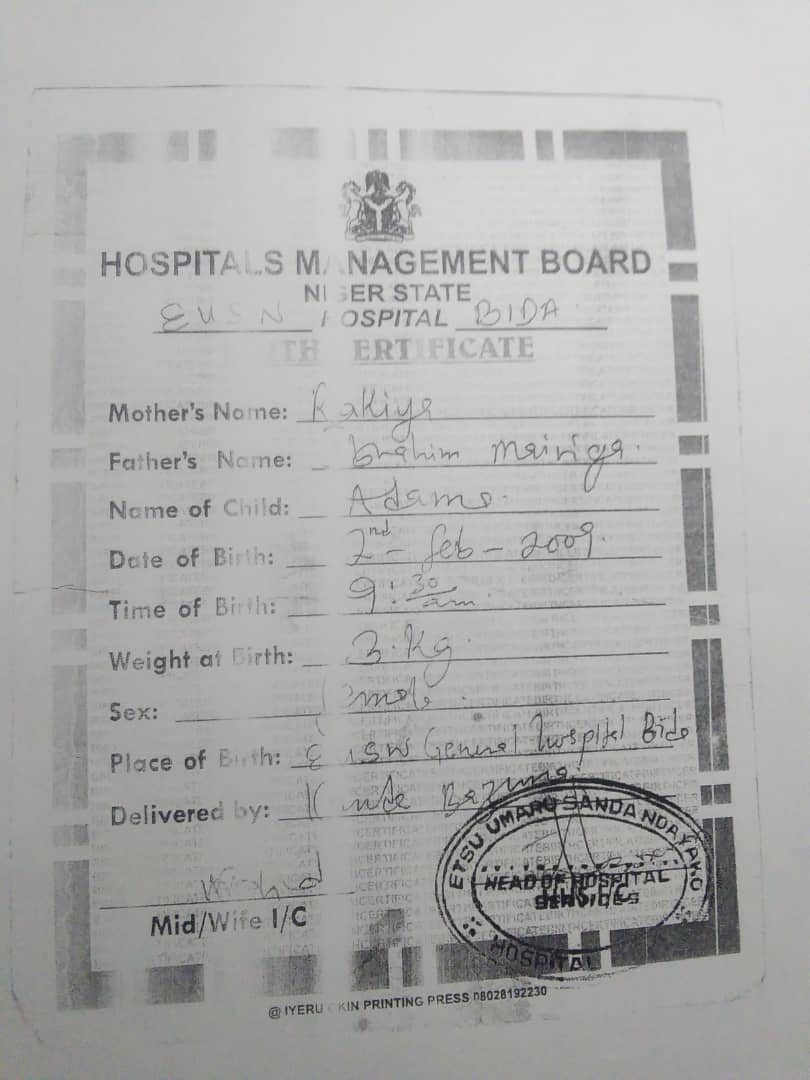 HOSPITALS MANAGEMENT BOARD
NIGER STATE
EUSN HOSPITAL BIDA
TH CERTIFICATE
Mother's Name: Rakiya
Father's Name: Ibrahim Mairiga.
Name of Child: Adams.
Date of Birth: 2nd - Feb - 2009.
Time of Birth: 9:30 am.
Weight at Birth: 3.Kg.
Sex: male.
Place of Birth: General hospital Bida
Delivered by:
Mid/Wife I/C
ETSU UMARU SANDA NDAYAKO
HEAD OF HOSPITAL
SERVICES
HOSPITAL
@ IYERU KIN PRINTING PRESS 08028192230